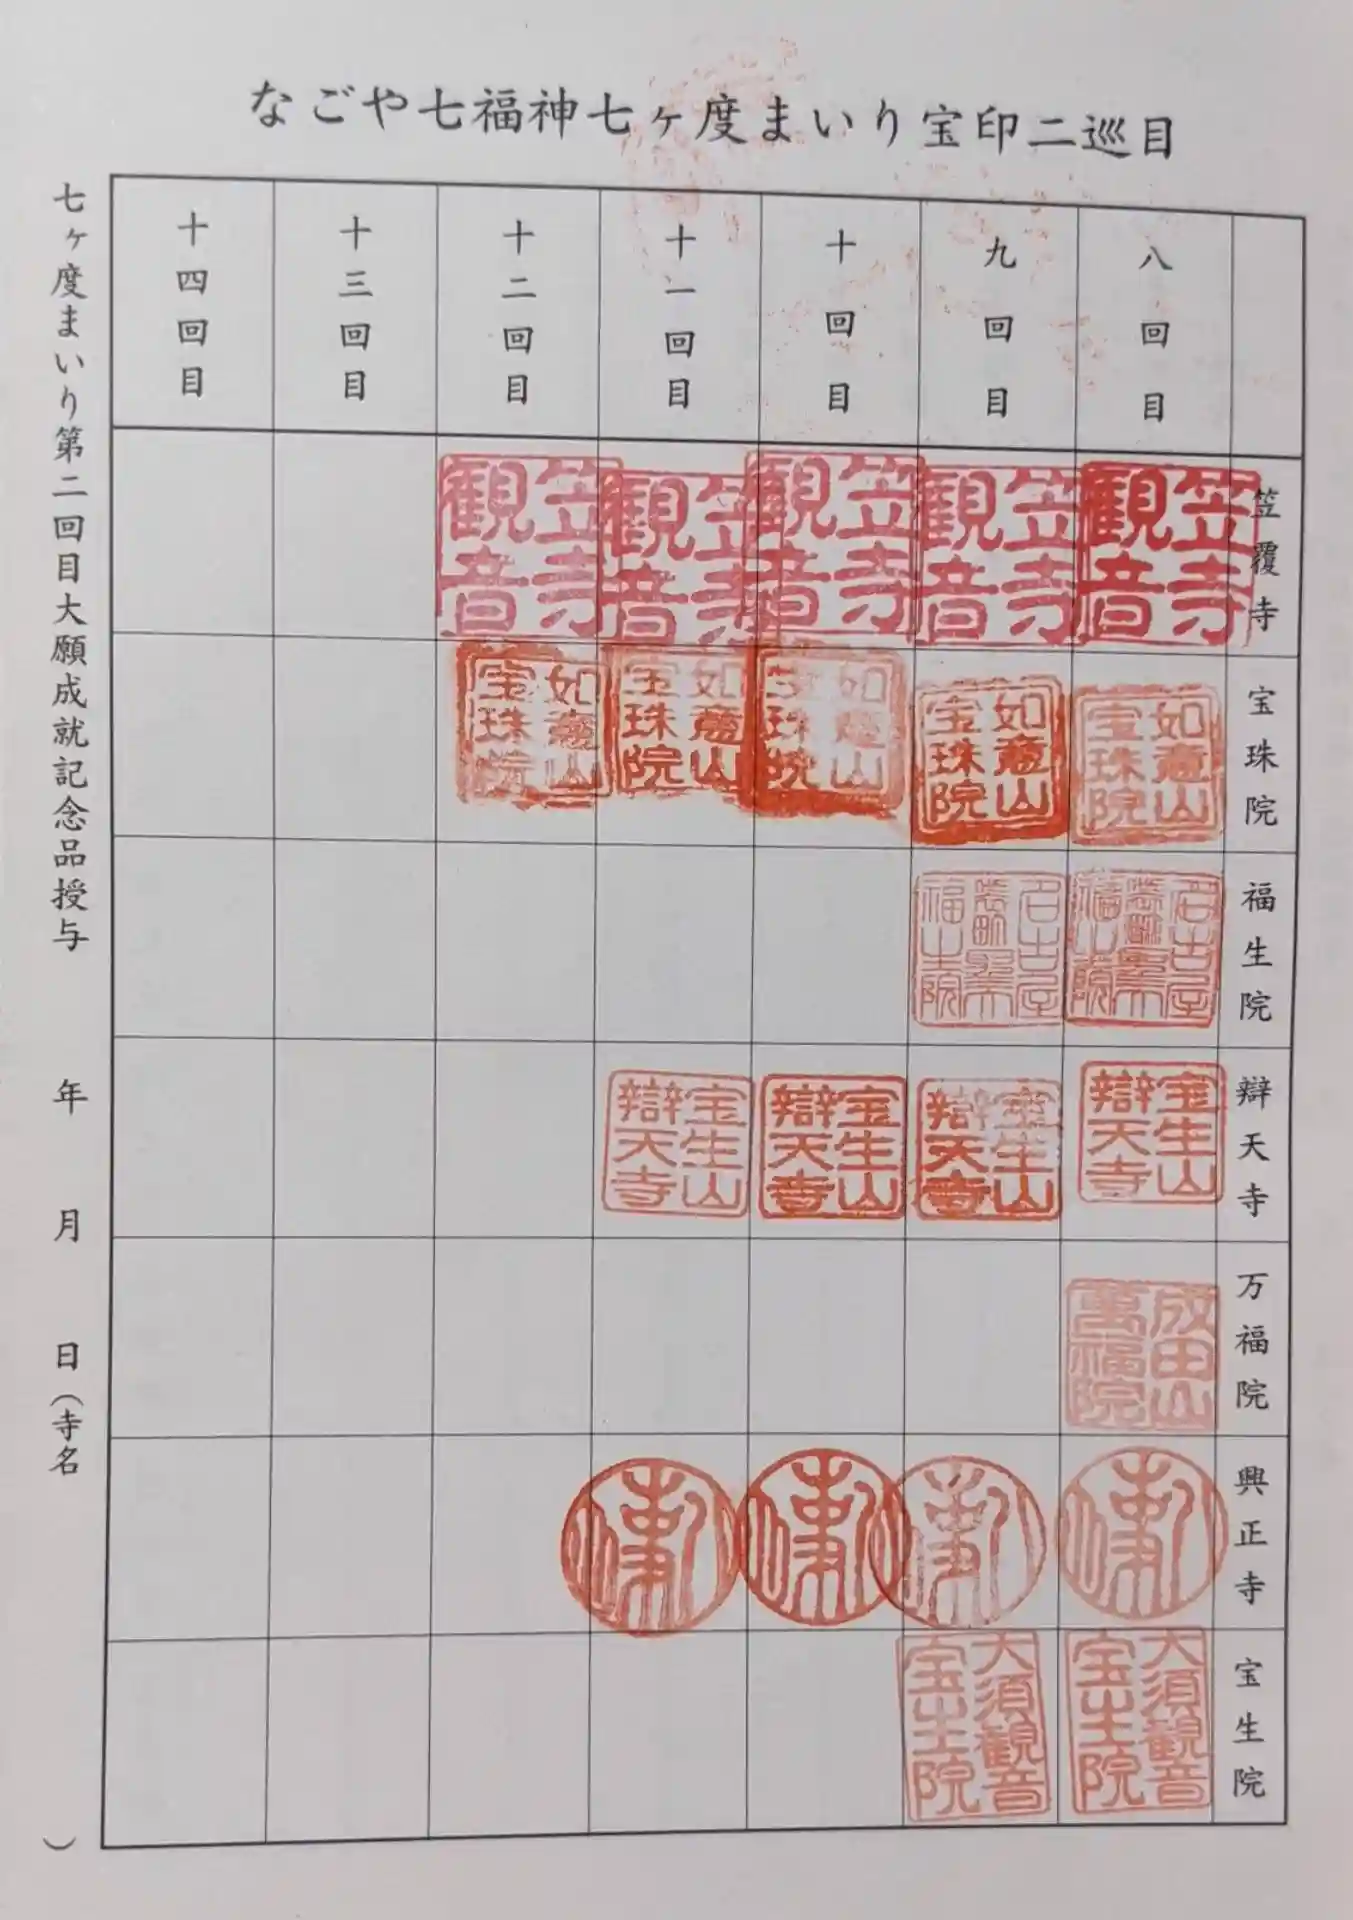 なごや七福神七ヶ度まいり宝印二巡目
八回目
九回目
十回目
十一回目
十二回目
十三回目
十四回目
笠覆寺
笠寺観音
笠寺観音
笠寺観音
笠寺観音
笠寺観音
宝珠院
如意山宝珠院
如意山宝珠院
如意山宝珠院
如意山宝珠院
如意山宝珠院
福生院
名古屋
福生院
名古屋
福生院
辯天寺
宝生山辯天寺
宝生山辯天寺
宝生山辯天寺
宝生山辯天寺
万福院
成田山萬福院
興正寺
宝生院
大須観音宝生院
大須観音宝生院
七ヶ度まいり第二回目大願成就記念品授与　年　月　日（寺名　）